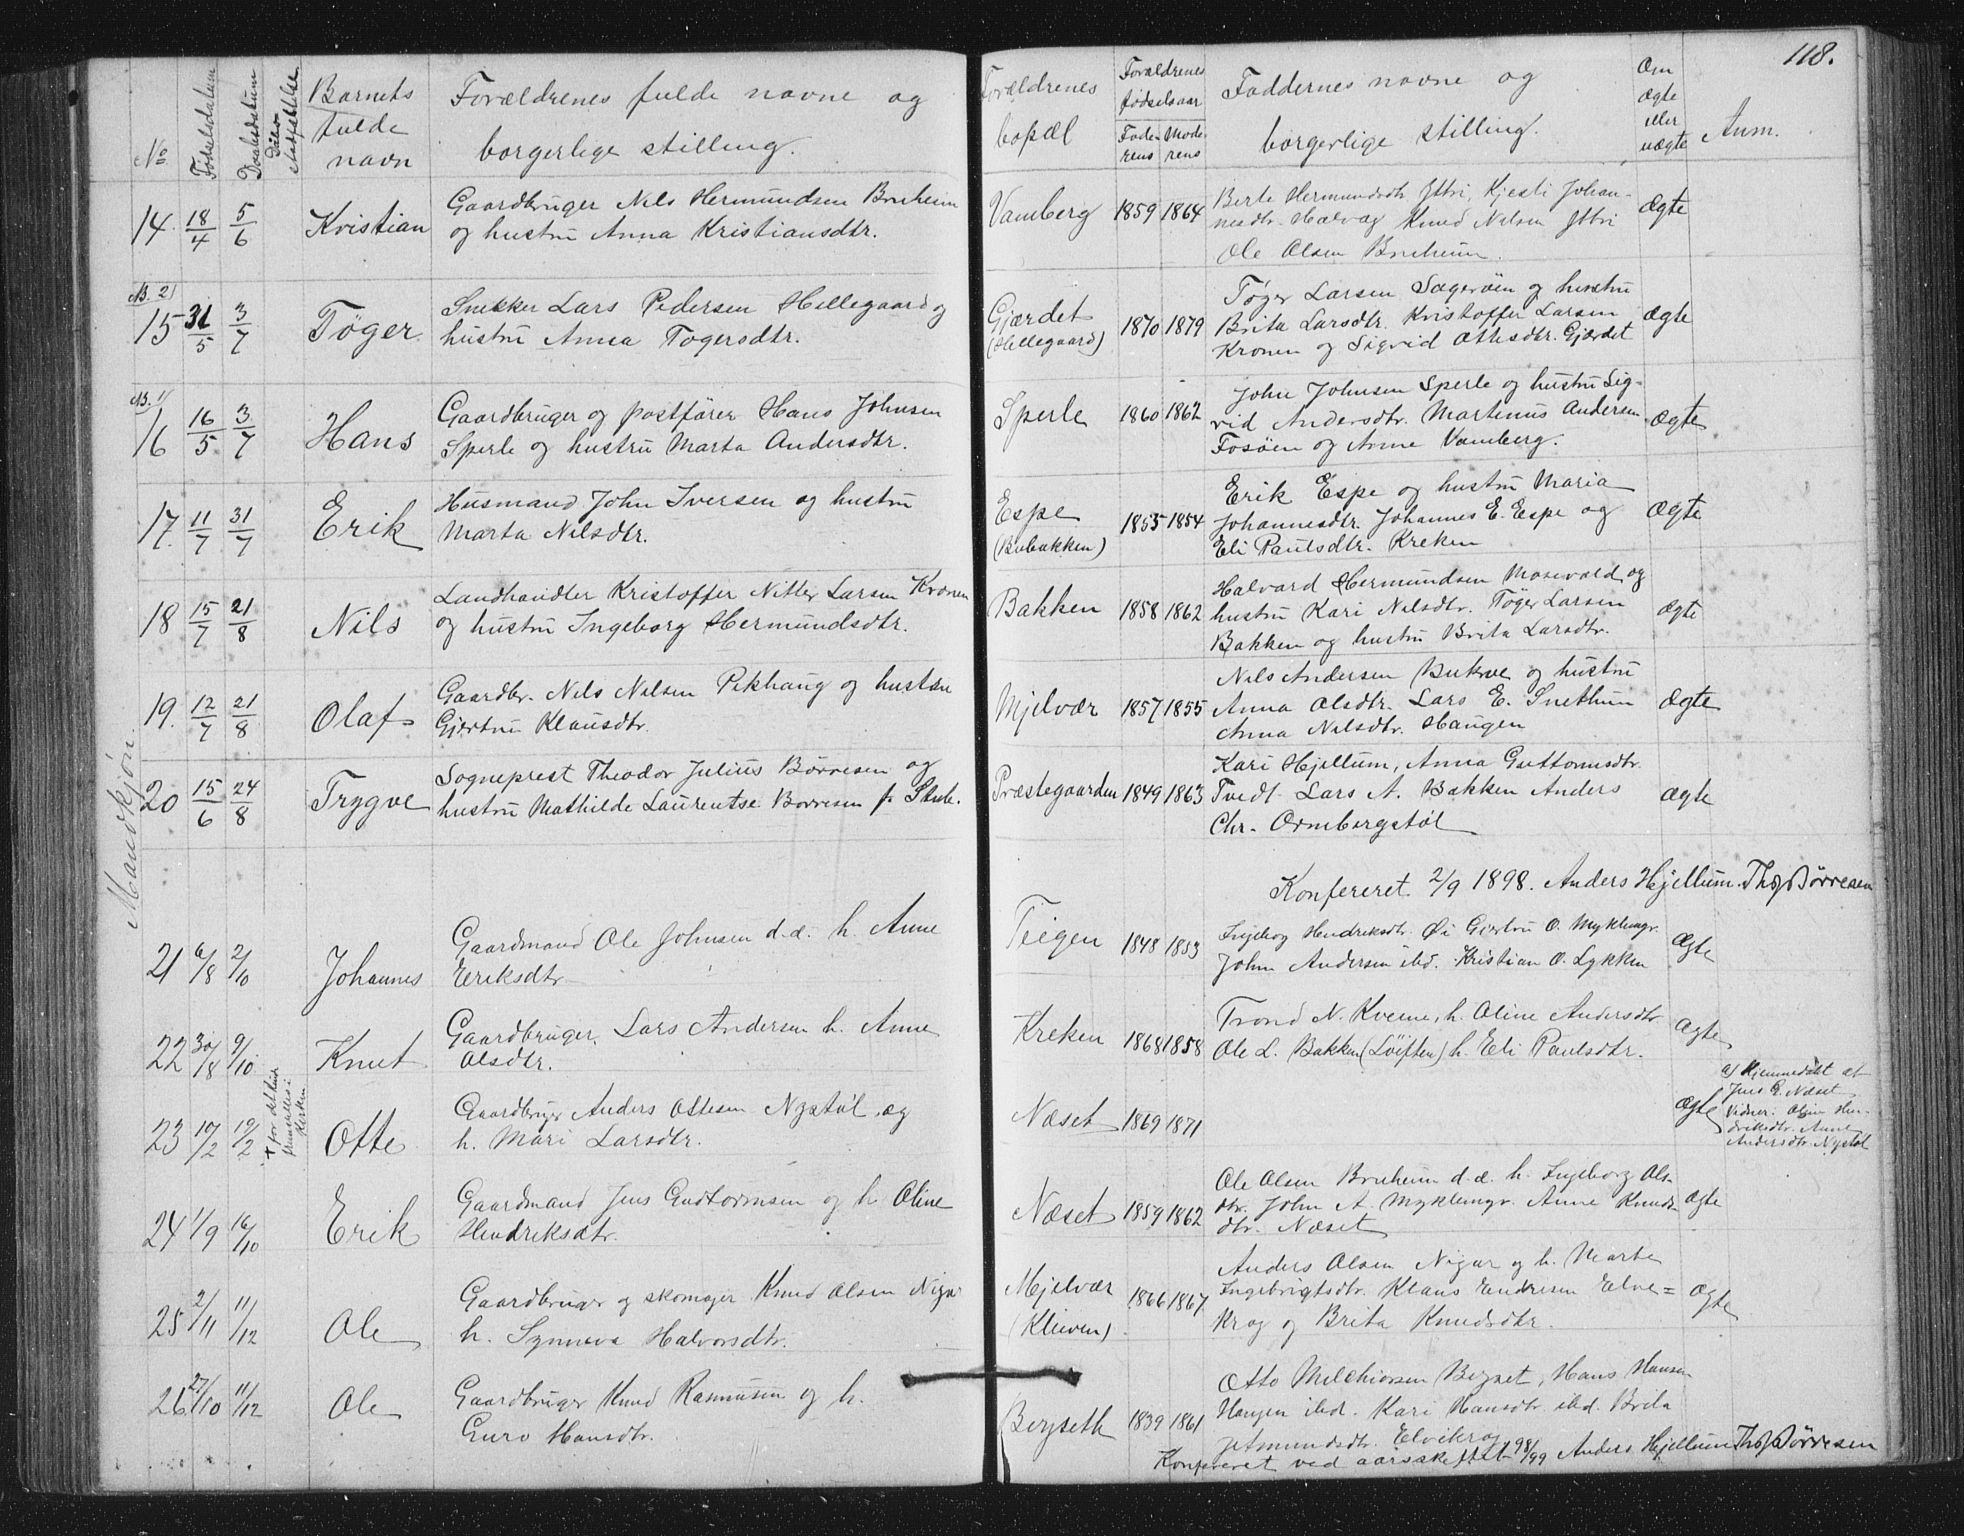 118.
No
Fødselsdatum
Daabsdatum
Daabs-
stedfæstelse
Barnets
fulde
navn
Forældrenes fulde navne og
borgerlige stilling.
Forældrenes
bopæl
Forældrenes
fødselsaar
Fade-
rens
Mode-
rens
Faddernes navne og
borgerlige stilling.
Om
ægte
eller
uægte
Anm.
Mandkjøn.
14. 18/4 5/6 Kristian
Gaardbruger Nils Hermundsen Bruheim
og hustru Anna Kristiansdtr.
Vamberg 1859 1864
Berte Hermundsdtr Yttri, Kjesti Johan-
nesdtr. Halvag Knud Nilsen Yttri
Ole Olsen Bruheim.
Ægte
NB. 2)
15 31/5 3/7 Tøger.
Snekker Lars Pedersen Hillegaard og
hustru Anna Togersdtr.
Gjærdet
(Hillegaard)
1870 1879
Tøger Larsen Sagerøen og hustru
Brita Larsdtr. Kristoffer Larsen
Kronen og Sigvid Ottesdtr. Gjærdet
Ægte
NB. 1)
16 16/5 3/7 Hans
Gaardbruger og postfører Hans Johnsen
Sperle og hustru Marta Andersdtr.
Sperle 1860 1862
John Johnsen Sperle og hustru Sig-
vid Andersdtr. Martinus Andersen
Fosøen og Anne Vamberg.
Ægte
17. 11/7 31/7 Erik
Husmand John Iversen og hustru
Marta Nilsdtr.
Espe
(Bubakken)
1855 1854
Erik Espe og hustru Maria
Johannesdtr. Johannes E. Espe og
Eli Paulsdtr. Kreken
Ægte
18 15/7 21/8 Nils
Landhandler Kristoffer Nitter Larsen Kronen
og hustru Ingeborg Hermundsdtr.
Bakken 1858 1862
Halvard Hermundsen Mosevold og
hustru Kari Nilsdtr. Tøger Larsen
Bakken og hustru Brita Larsdtr.
Ægte
19. 12/7 21/8 Olaf
Gaardbr. Nils Nilsen Pikhaug og hustru
Gjertru Klausdtr.
Mjelvær 1857 1855
Nils Andersen Bukve og hustru
Anna Olsdtr. Lars E. Snethun
Anna Nilsdtr. Haugen
Ægte
20 15/6 24/8 Trygve
Sogneprest Theodor Julius Børresen og
hustru Mathilde Laurentse Børresen f.
Præstegaarden 1849 1863
Kari Hjellum, Anna Guttormsdtr.
Tvedt Lars A. Bakken Anders
Chr. Ormbergstøl
Ægte
Konfereret 2/9 1898. Anders Hjellum. Th J Børresen
21 6/8 2/10 Johannes
Gaardmand Ole Johnsen d.æ. h. Anne
Eriksdtr
Teigen 1848 1853
Ingeborg Hendriksdtr. Øi Gjertru O. Myklemyr.
John Andersen ibd. Kristian O. Lykken
Ægte
22 30/8 9/10 Knut
Gaardbruger. Lars Andersen h. Anne
Olsdtr.
Kreken 1868 1858
Trond N. Kveme, h. Oline Andersdtr
Ole L. Bakken (Løiften) h. Eli Paulsdtr.
Ægte
23 10/2 10/2 Otte
Gaardbruger Anders Ottesen Nystøl og
h. Mari Larsdtr.
Næset 1869 1871
Ægte
a) Hjemmedøbt af
Jens G. Næset
Vidner: Oline Hen-
driksdtr. Anne
Andersdtr. Nystøl
24 1/9 16/10 Erik
Gaardmand Jens Gudtormsen og h. Oline
Hendriksdtr.
Næset 1859 1862
Ole Olsen Bruheim d.æ. h. Ingeborg Ols-
dtr. John A. Myklemyr. Anne Knuds-
dtr. Næset
Ægte
25 2/11 11/12 Ole
Gaardbruger og skomager Knud Olsen Nigar
h. Synneva Halvorsdtr.
Mjelvær
(Kleiven)
1866 1867
Anders Olsen Nigar og h. Marte
Ingebrigtsdtr. Klaus Endresen Elve=
krog og Brita Knudsdtr.
Ægte
26 27/10 11/12 Ole
Gaardbruger Knud Rasmusen og h.
Guro Hansdtr.
Beyseth 1839 1861
Otto Melchiorsen Beyset, Hans Hansen
Haugen ibd. Kari Hansdtr. ibd. Brita
Asmundsdtr. Elvikrog
Konfereret ved aarsskiftet 1898/99 Anders Hjellum Th J Børresen